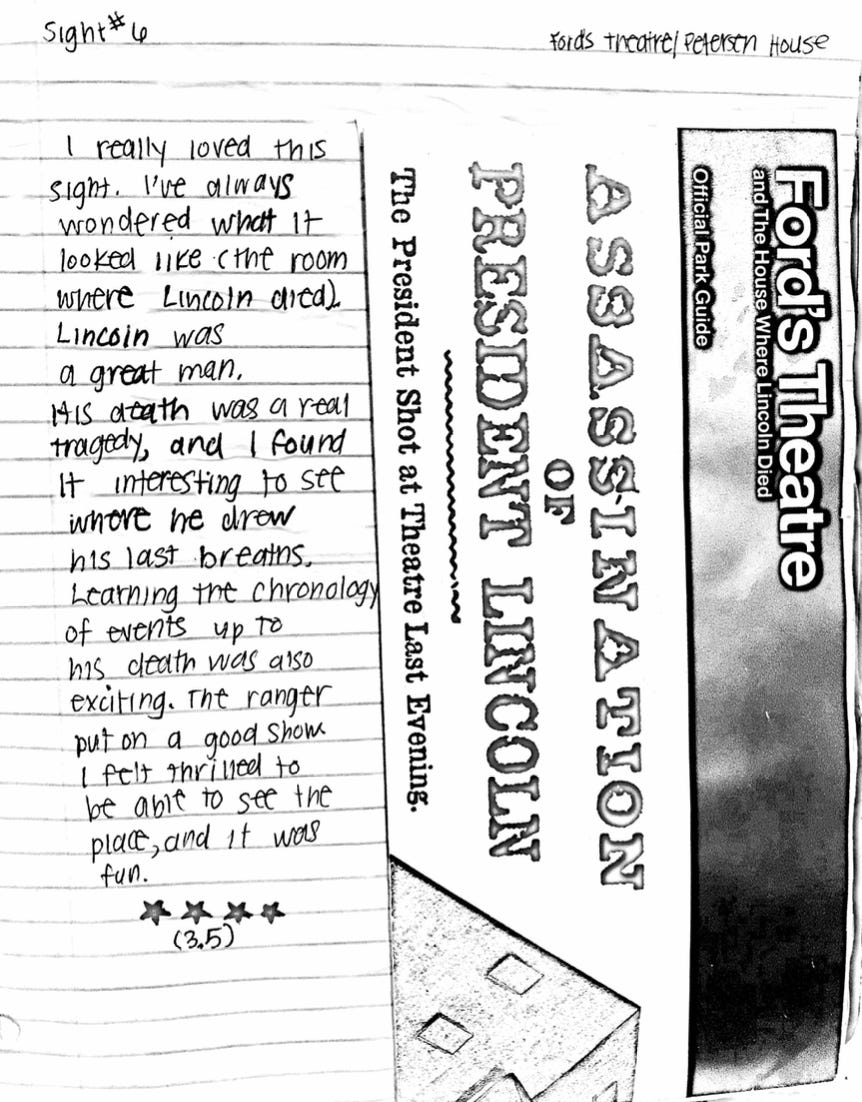 Sight #6
Ford's Theatre/Petersen House
I really loved this
sight. I've always
wondered what it
looked like (the room
where Lincoln died).
Lincoln was
a great man.
His death was a real
tragedy, and I found
it interesting to see
where he drew
his last breaths.
Learning the chronology
of events up to
his death was also
exciting. The ranger
put on a good show.
I felt thrilled to
be able to see the
place, and it was
fun.
(3.5)
Ford's Theatre
and The House Where Lincoln Died
Official Park Guide
ASSASSINATION
OF
PRESIDENT LINCOLN
The President Shot at Theatre Last Evening.